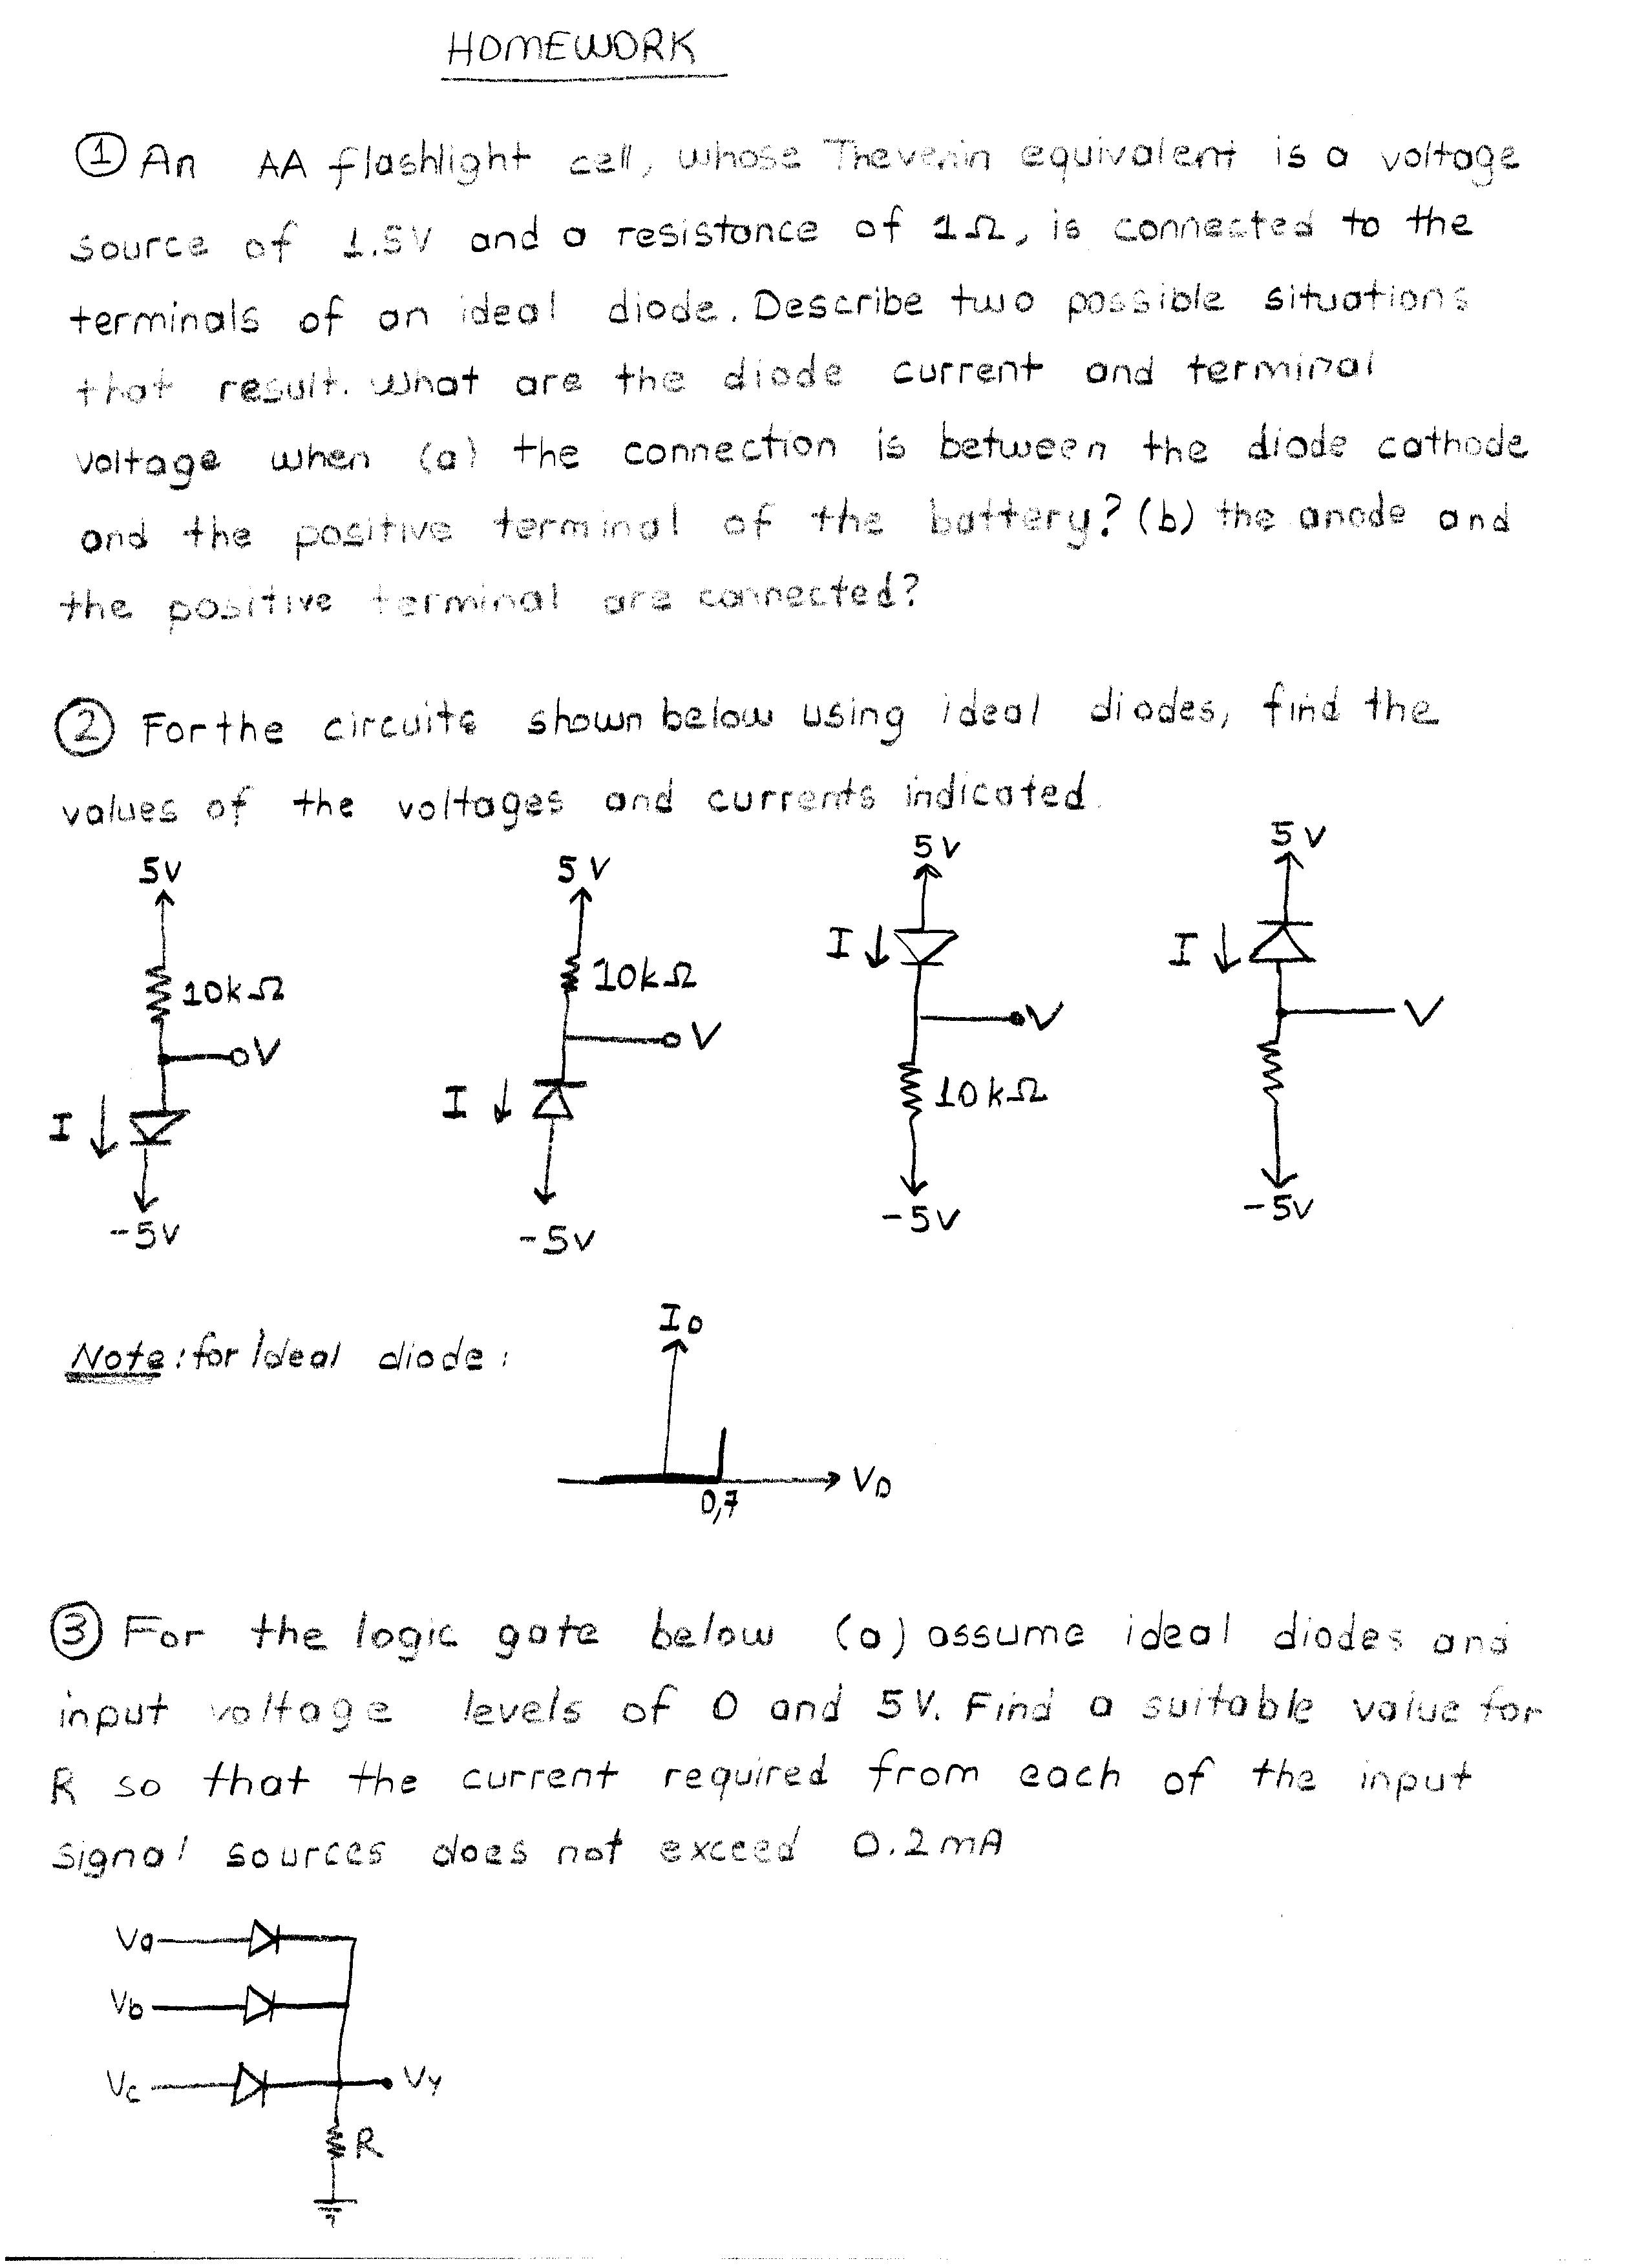 HOMEWORK
① An AA flashlight cell, whose Thevenin equivalent is a voltage
source of 1.5V and a resistance of 1Ω, is connected to the
terminals of an ideal diode. Describe two possible situations
that result. What are the diode current and terminal
voltage when (a) the connection is between the diode cathode
and the positive terminal of the battery? (b) the anode and
the positive terminal are connected?
② For the circuits shown below using ideal diodes, find the
values of the voltages and currents indicated.
5V 5V 5V 5V
I I
10kΩ 10kΩ
V V V V
10kΩ
I I
-5V -5V -5V -5V
Note: for Ideal diode:
ID
VD
0,7
③ For the logic gate below (a) assume ideal diodes and
input voltage levels of 0 and 5V. Find a suitable value for
R so that the current required from each of the input
signal sources does not exceed 0.2mA
Va
Vb
Vc Vy
R